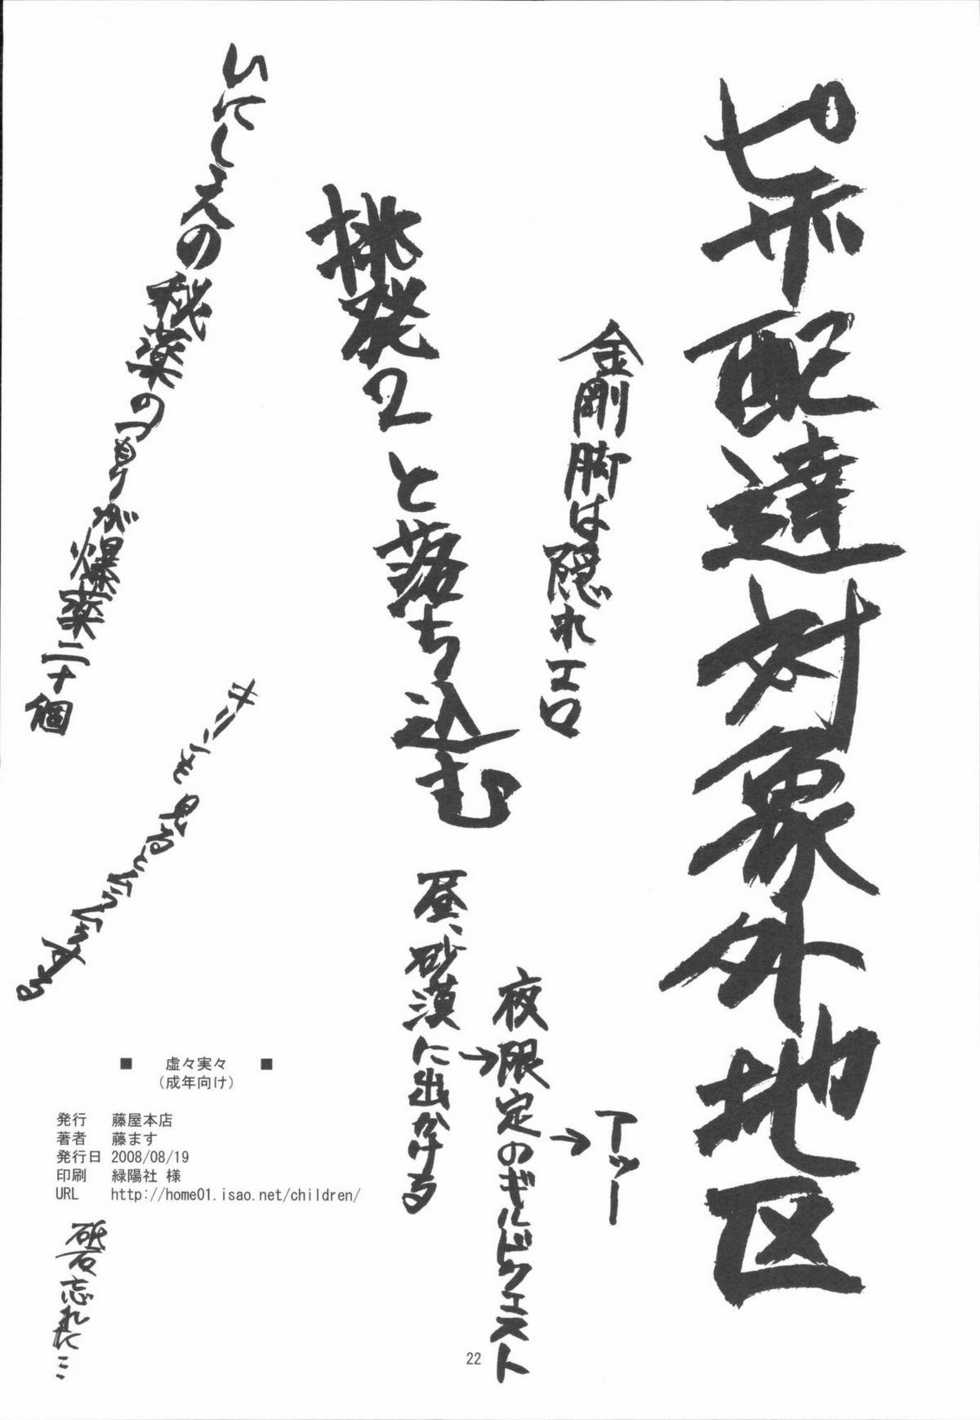 ピザ配達対象外地区
金剛脚は隠れエロ
挑発2と落ち込む
いにしえの秘薬のつもりが爆薬二十個
キリンを見るとムラムラする
昼、砂漠に出かける
→夜限定のギルドクエスト
→アッー
■ 虚々実々 ■
(成年向け)
発行 藤屋本店
著者 藤ます
発行日 2008/08/19
印刷 緑陽社 様
URL http://home01.isao.net/children/
砥石忘れた…
22